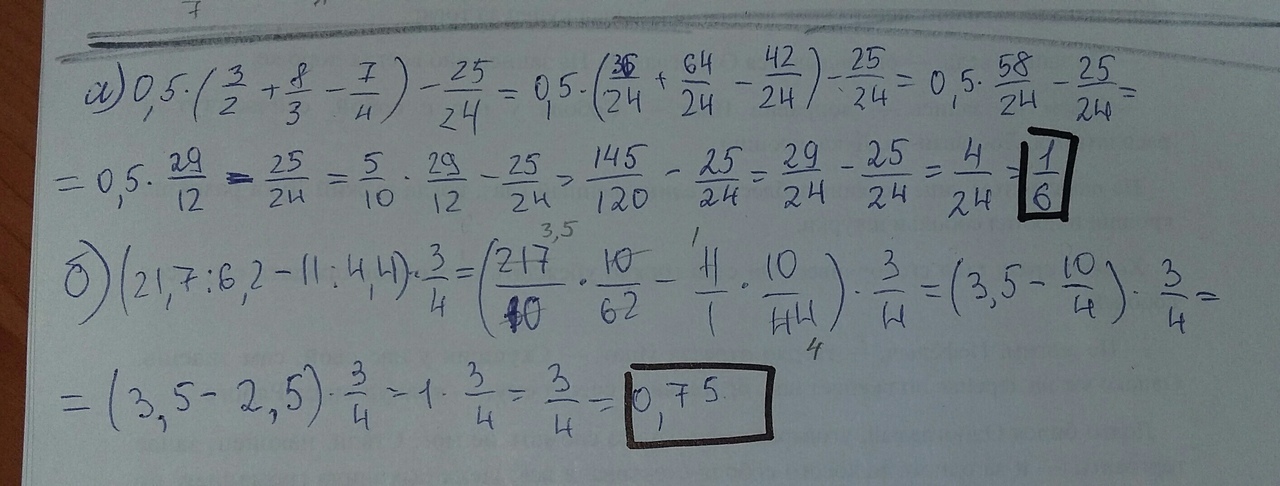 7
а) 0,5 · (3/2 + 8/3 − 7/4) − 25/24 = 0,5 · (36/24 + 64/24 − 42/24) − 25/24 = 0,5 · 58/24 − 25/24 =
= 0,5 · 29/12 − 25/24 = 5/10 · 29/12 − 25/24 = 145/120 − 25/24 = 29/24 − 25/24 = 4/24 = 1/6
б) (21,7 : 6,2 − 11 : 4,4) · 3/4 = (217/10 · 10/62 − 11/1 · 10/44) · 3/4 = (3,5 − 10/4) · 3/4 =
3,5 1 4
= (3,5 − 2,5) · 3/4 = 1 · 3/4 = 3/4 = 0,75